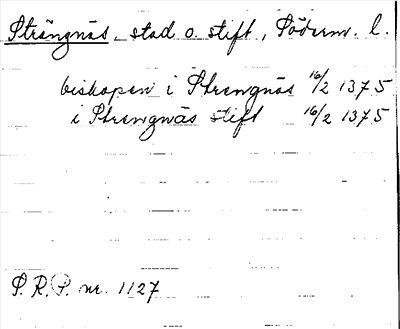 Strängnäs, stad o. stift, Söderm. l.
biskopen i Strengnäs 16/2 1375
i Strengnäs stift 16/2 1375
S. R. P. nr. 1127